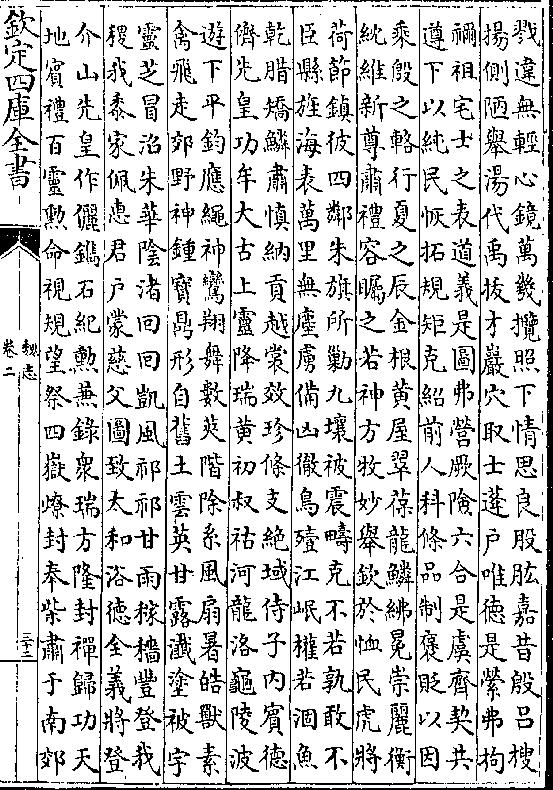 戮違無輕心鏡萬幾攬照下情思良股肱嘉昔殷吕搜
揚側陋舉湯代禹拔才巖穴取士蓬户唯德是縈弗拘
禰祖宅土之表道義是圖弗營厥險六合是虞齊契共
遵下以純民恢拓規矩克紹前人科條品制褒貶以因
乘殷之輅行夏之辰金根黄屋翠葆龍鱗紼冕崇麗衡
紞維新尊肅禮容矚之若神方牧妙舉欽於恤民虎將
荷節鎮彼四鄰朱旗所勦九壤被震疇克不若孰敢不
臣縣旌海表萬里無塵虜備凶徹鳥殪江岷權若涸魚
乾腊矯鱗肅慎納貢越裳效珍條支絶域侍子内賓德
儕先皇功牟大古上靈降瑞黄初叔祜河龍洛龜陵波
遊下平鈞應繩神鸞翔舞數莢階除系風扇暑皓獸素
禽飛走郊野神鍾寶鼎形自舊土雲英甘露瀸塗被宇
靈芝冒沼朱華陰渚回回凱風祁祁甘雨稼穡豐登我
稷我黍家佩惠君户蒙慈父圖致太和洽德全義將登
介山先皇作儷鐫石紀勲兼錄衆瑞方隆封禪歸功天
地賓禮百靈勲命視規望祭四嶽燎封奉柴肅于南郊
欽定四庫全書
魏志
卷二
三十三